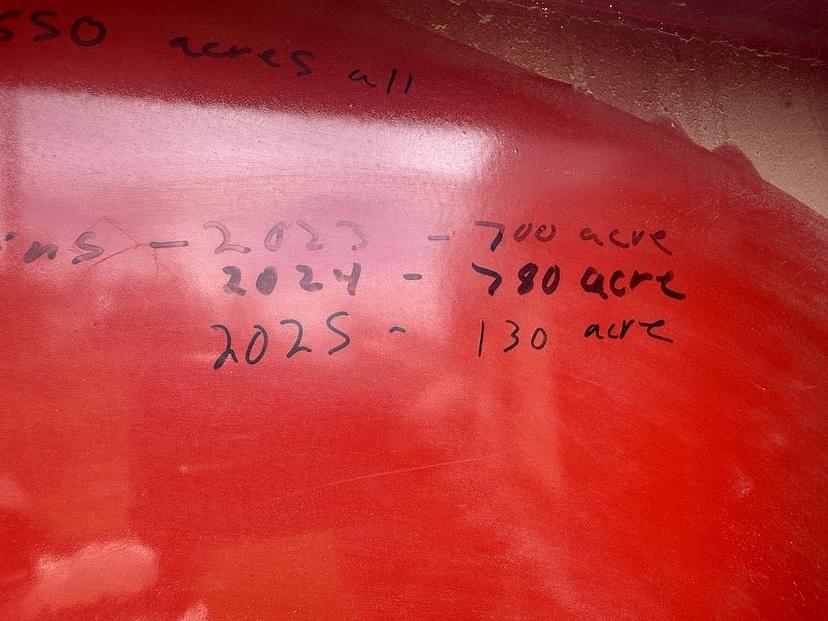 550 acres all
ns - 2023 - 700 acre
2024 - 780 acre
2025 - 130 acre